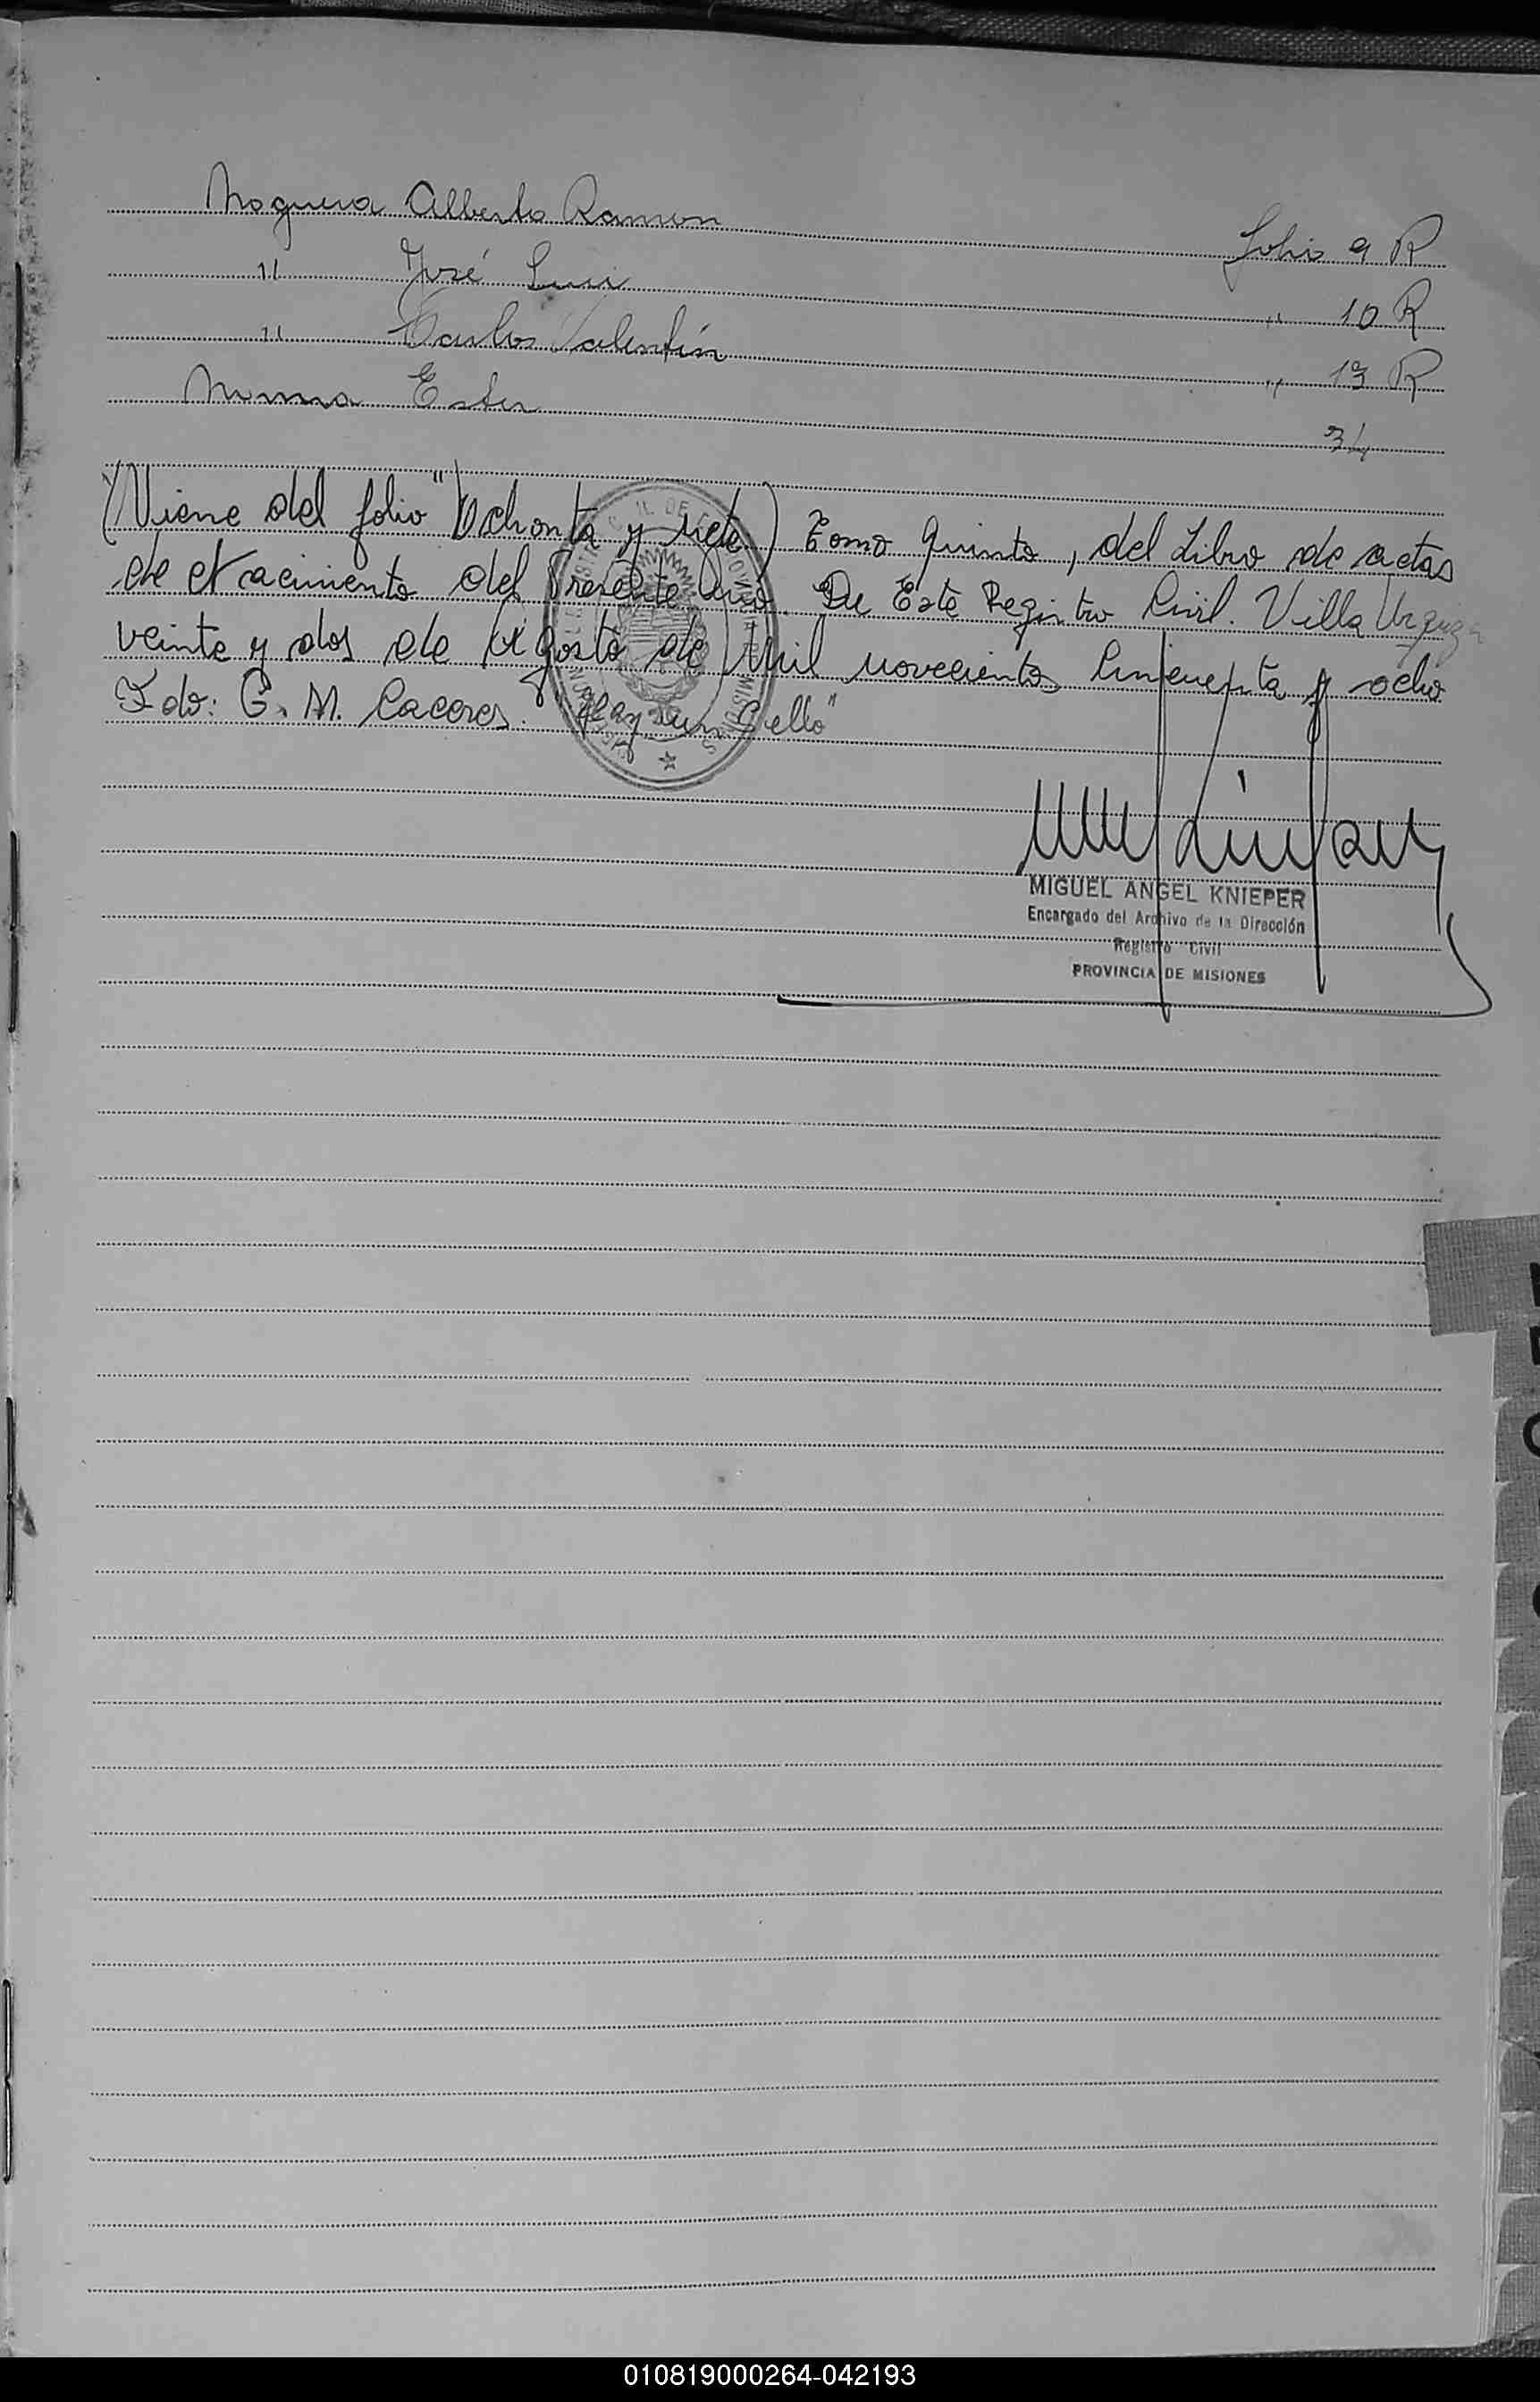 Noguera Alberto Ramon folio 9 R
" José Luis " 10 R
" Carlos Valentín " 13 R
Ester 34
(Viene del folio "Ochenta y siete) Tomo Quinto, del Libro de actas
de Nacimiento del Presente Año. De Este Registro Civil. Villa Urquiza
veinte y dos de Agosto de Mil novecientos Cincuenta y ocho
Fdo: G. M. Caceres. "Hay un Sello"
MIGUEL ANGEL KNIEPER
Encargado del Archivo de la Dirección
Registro Civil
PROVINCIA DE MISIONES
010819000264-042193